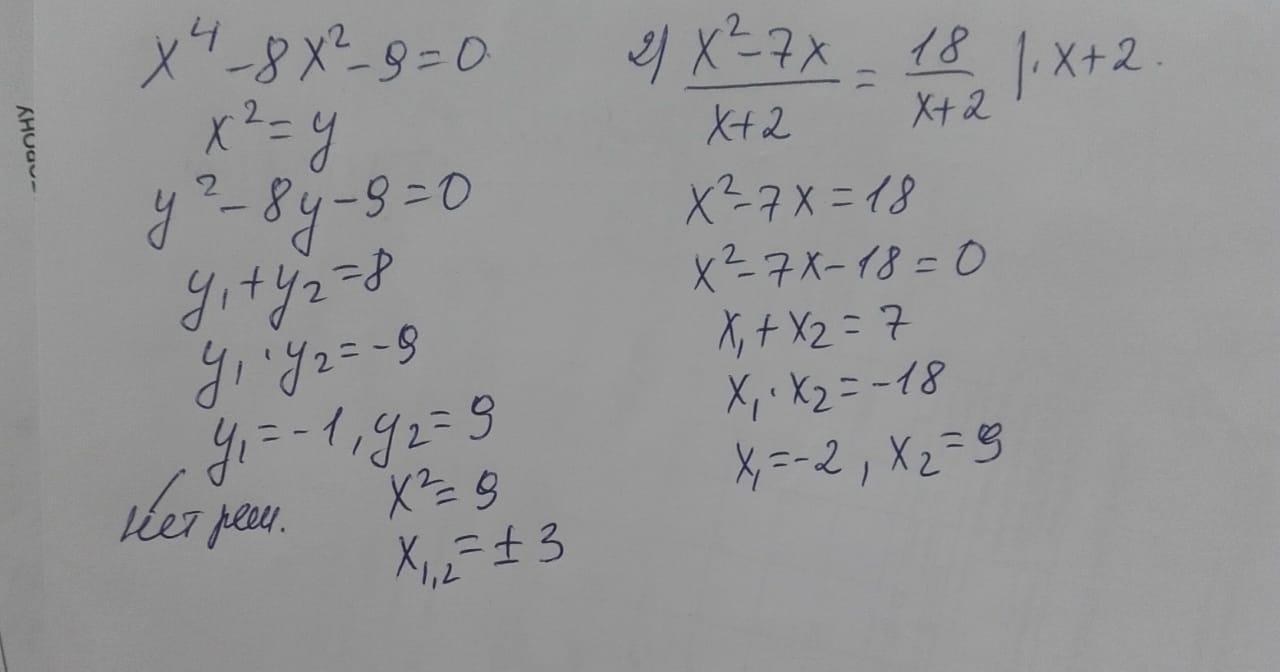 x⁴-8x²-9=0
x²=y
y²-8y-9=0
y₁+y₂=8
y₁·y₂=-9
y₁=-1, y₂=9
Нет реш.
x²=9
x₁,₂=±3
2) (x²-7x)/(x+2) = 18/(x+2) |·x+2.
x²-7x=18
x²-7x-18=0
x₁+x₂=7
x₁·x₂=-18
x₁=-2, x₂=9